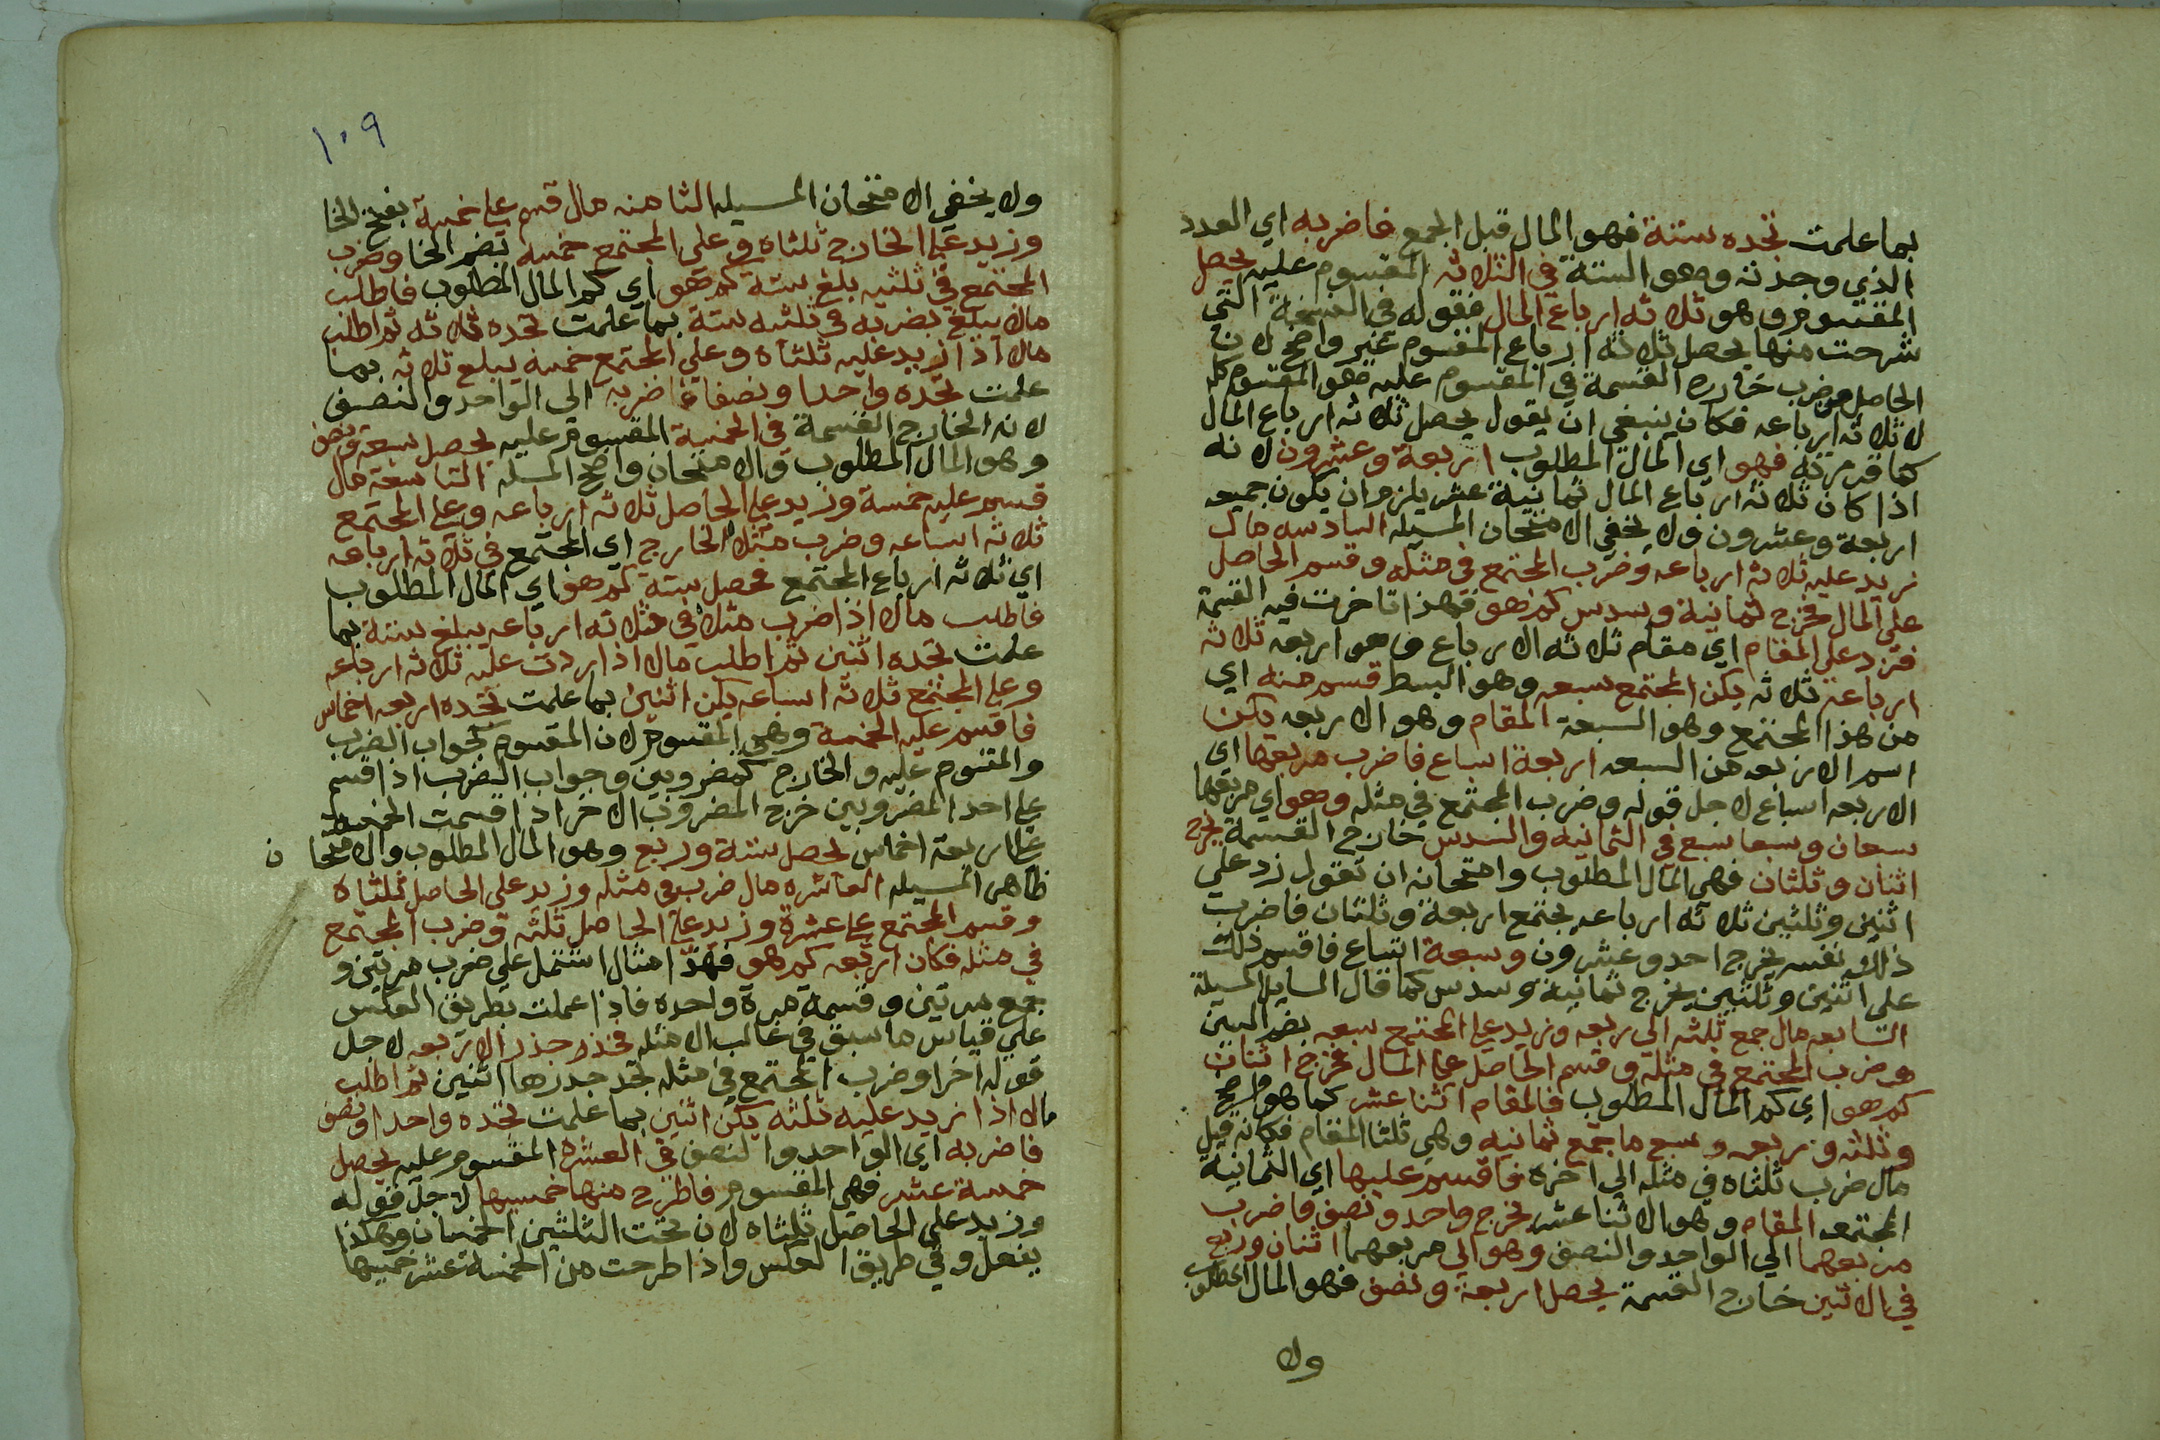 بما علمت تجده ستة فهو المال قبل الجمع فاضربه اي العدد
الذي وجدته وهو الستة في الثلاثه المقسوم عليه يحصل
المقسوم وهو ثلاثه ارباع المال فقوله في النسخة التي
شرحت منها يحصل ثلاثة ارباع المقسوم غير واضح لان
الحاصل من ضرب خارج القسمة في المقسوم عليه هو المقسوم كله
لا ثلاثه ارباعه فكان ينبغي ان يقول يحصل ثلاثه ارباع المال
كما قدمته فهو اي المال المطلوب اربعة وعشرون لانه
اذا كان ثلاثة ارباع المال ثمانية عشر يلزم ان يكون جميعه
اربعة وعشرون ولا يخفي الامتحان المسيله السادسه مال
زيد عليه ثلاثه ارباعه وضرب المجتمع في مثله وقسم الحاصل
علي المال فخرج ثمانية وسدس كم هو فهذا تاخرت فيه القسمة
فزد علي المقام اي مقام ثلاثه الارباع وهو اربعه ثلاثه
ارباعه ثلاثه يكن المجتمع سبعه وهو البسط قسم منه اي
من هذا المجتمع وهو السبعة المقام وهو الاربعه يكن
اسم الاربعه من السبعه اربعة اسباع فاضرب مربعها اي
الاربعه اسباع لاجل قوله وضرب المجتمع في مثله وهو اي مربعها
سبعان وسبعا سبع في الثمانيه والسدس خارج القسمة يخرج
اثنان وثلثان فهي المال المطلوب وامتحانه ان تقول زد علي
اثنين وثلثين ثلاثه ارباعه يجتمع اربعة وثلثان فاضرب
ذلك في نفسه يخرج احد وعشرون وسبعة اتساع فاقسم ذلك
علي اثنين وثلثين يخرج ثمانية وسدس كما قال السايل المسيلة
السابعه مال جمع ثلثه الي ربعه وزيد علي المجتمع سبعه بضم السين
وضرب المجتمع في مثله وقسم الحاصل علي المال فخرج اثنان
كم هو اي كم المال المطلوب فالمقام اثنا عشر كما هو واضح
وثلثه وربعه وسبع ما جمع ثمانيه وهي ثلثا المقام فكانه قيل
مال ضرب ثلثاه في مثله الي اخره فاقسم عليها اي الثمانية
المجتمعه المقام وهو الاثنا عشر يخرج واحد ونصف فاضرب
مربعهما اي الواحد والنصف وهو اي مربعهما اثنان وربع
في الاثنين خارج القسمة يحصل اربعة ونصف فهو المال المطلوب
ولا
١٠٩
ولا يخفي الامتحان المسيله الثامنه مال قسم علي خمسة بفتح الخا
وزيد علي الخارج ثلثاه وعلي المجتمع خمسه بضم الخا وضرب
المجتمع في ثلثيه بلغ ستة كم هو اي كم المال المطلوب فاطلب
مالا يبلغ بضربه في ثلثيه ستة بما علمت تجده ثلاثه ثم اطلب
مالا اذا زيد عليه ثلثاه وعلي المجتمع خمسه يبلغ ثلاثه بما
علمت تجده واحدا ونصفا فاضربه اي الواحد والنصف
لانه الخارج القسمة في الخمسة المقسوم عليه يحصل سبعة ونصف
وهو المال المطلوب والامتحان واضح المسيله التاسعة مال
قسم عليه خمسة وزيد علي الحاصل ثلاثه ارباعه وعلي المجتمع
ثلاثه اسباعه وضرب مثلا الخارج اي المجتمع في ثلاثه ارباعه
اي ثلاثه ارباع المجتمع فحصل ستة كم هو اي المال المطلوب
فاطلب مالا اذا ضرب مثلا في ثلاثه ارباعه يبلغ ستة بما
علمت تجده اثنين ثم اطلب مالا اذا زدت عليه ثلاثه ارباعه
وعلي المجتمع ثلاثه اسباعه يكن اثنين بما علمت تجده اربعه اخماس
فاقسم عليه الخمسة وهي المقسوم لان المقسوم كجواب الضرب
والمقسوم عليه والخارج كمضروبين وجواب الضرب اذا قسم
علي احد المضروبين خرج المضروب الاخر اذا قسمت الخمسة
علي اربعة اخماس يحصل ستة وربع وهو المال المطلوب والامتحان
ظاهر المسيله العاشره مال ضرب في مثله وزيد علي الحاصل ثلثاه
وقسم المجتمع علي عشرة وزيد علي الحاصل ثلثه وضرب المجتمع
في مثله فكان اربعه كم هو فهذا مثال اشتمل علي ضرب مرتين و
جمع مرتين وقسمة مرة واحده فاذا عملت بطريق العكس
علي قياس ما سبق في غالب الامثله فخذ جذر الاربعه لاجل
قوله اخرا وضرب المجتمع في مثله تجد جدرها اثنين ثم اطلب
مالا اذا زيد عليه ثلثه يكن اثنين بما علمت تجده واحدا ونصف
فاضربه اي الواحد والنصف في العشره المقسوم عليه يحصل
خمسة عشر فهي المقسوم فاطرح منها خمسيها لاجل قوله
وزيد علي الحاصل ثلثاه لان تحت الثلثين الخمسان وهكذا
يفعل في طريق العكس واذا طرحت من الخمسة عشر خمسيها